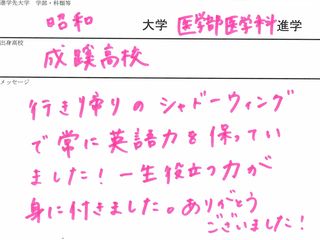 進学先大学　学部・科類等
昭和　大学　医学部医学科進学
出身高校
成蹊高校
メッセージ
行き帰りのシャドーウィング
で常に英語力を保ってい
ました！一生役立つ力が
身に付きました。ありがとう
ございました！